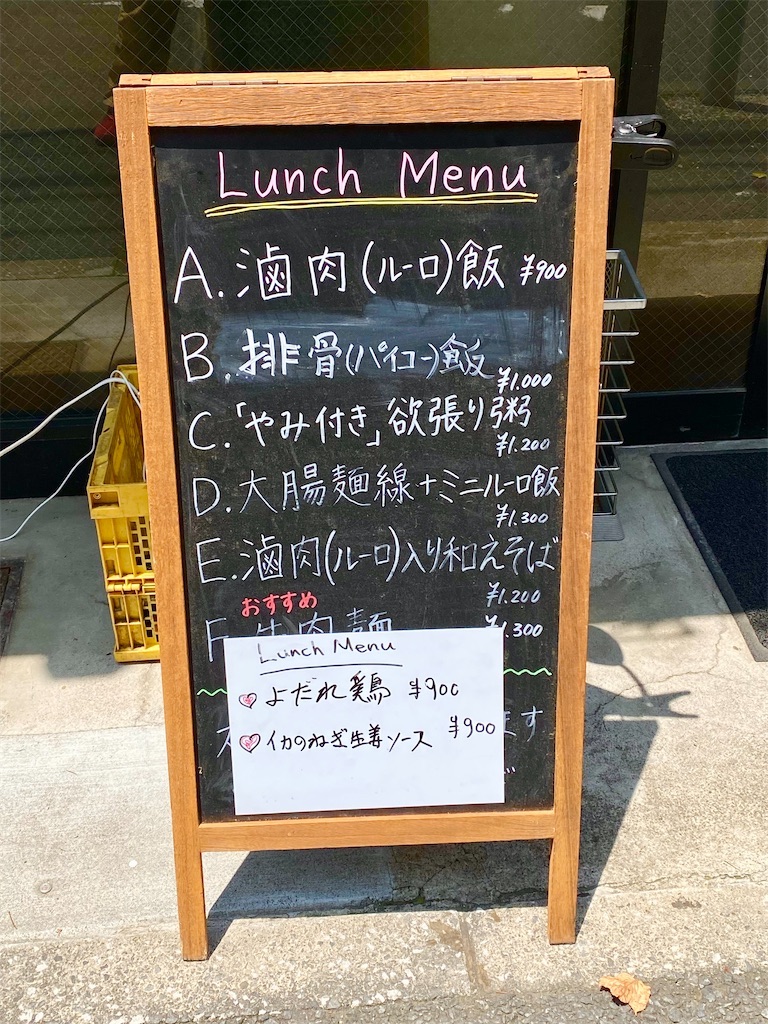 Lunch Menu
A. 滷肉(ルーロ)飯 ¥900
B. 排骨(パイコー)飯 ¥1.000
C.「やみ付き」欲張り粥 ¥1.200
D. 大腸麺線+ミニルーロ飯 ¥1.300
E. 滷肉(ルーロ)入り和えそば ¥1.200
おすすめ
F. 牛肉麺 ¥1.300
Lunch Menu
よだれ鶏 ¥900
イカのねぎ生姜ソース ¥900
ます